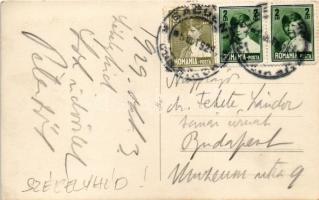 1929. okt. 3
Székelyhid
Sok üdvözlet
SZÉKELYHÍD!
ROMANIA-POSTA
2
ROMANIA-POSTA
2
ROMANIA-POSTA
Nagys.
dr. Fekete Sándor
tanár úrnak
Budapest
Muzeum utca 9